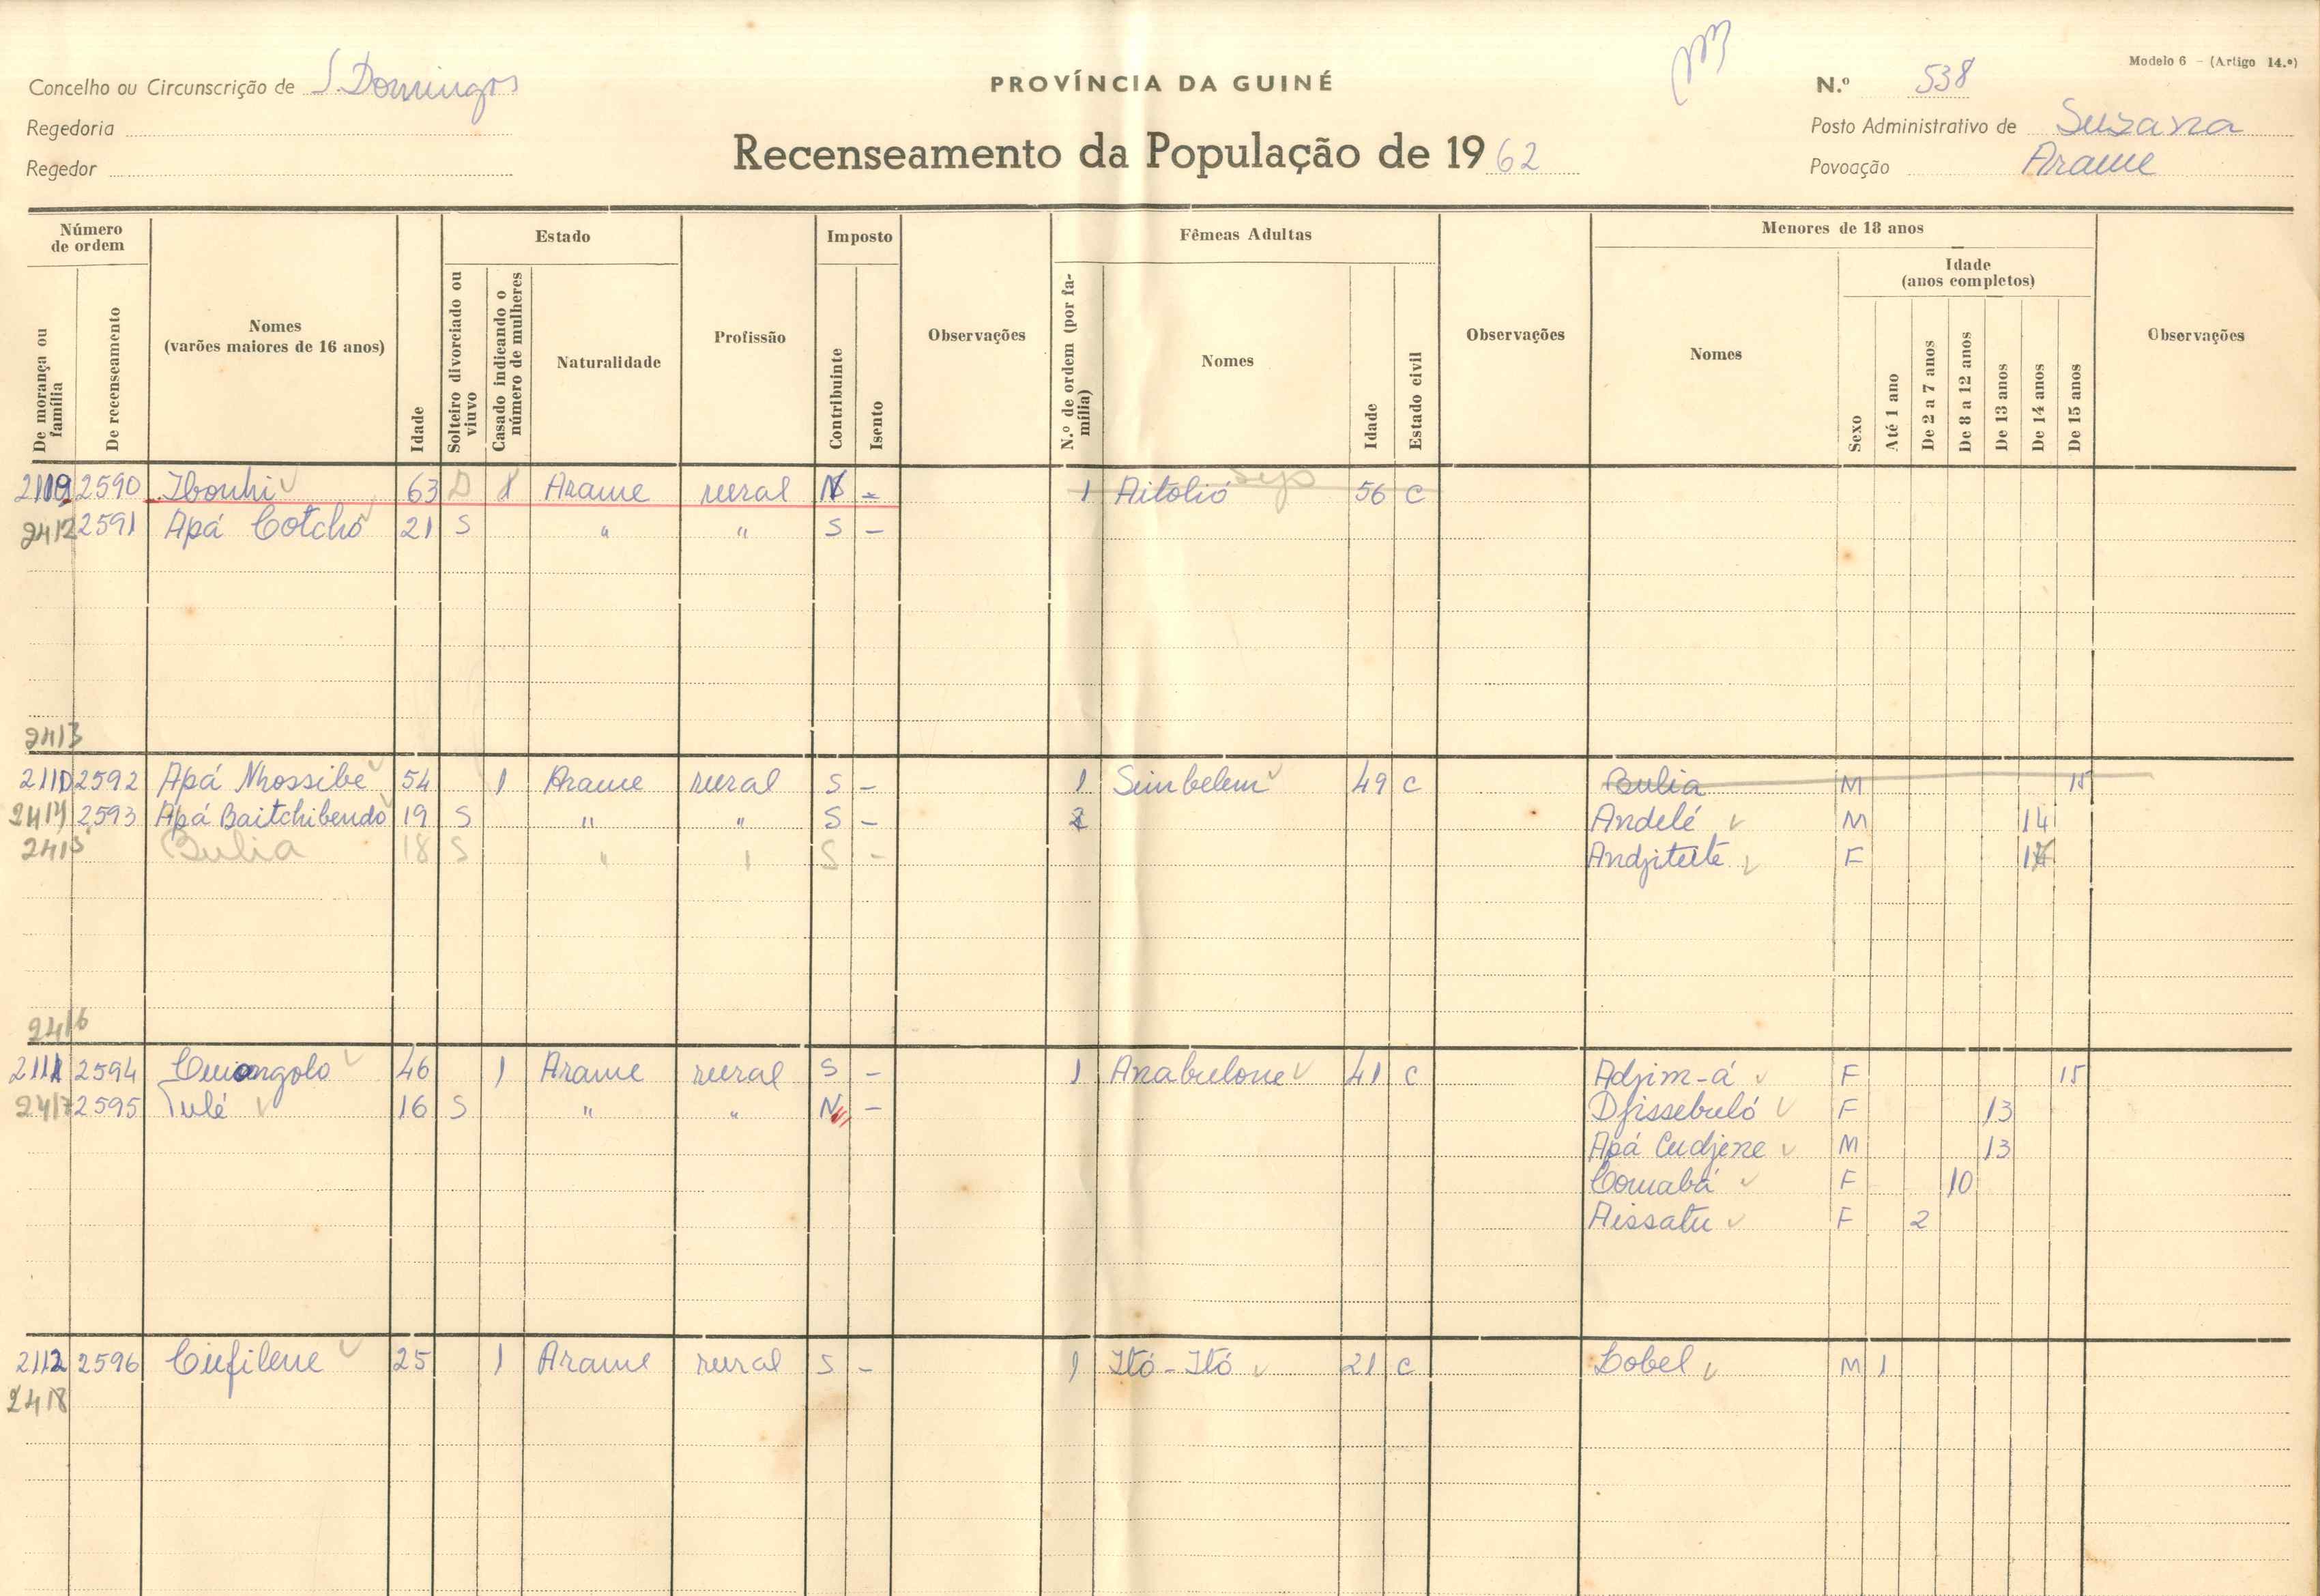 Modelo 6 - (Artigo 14.º)
Concelho ou Circunscrição de S. Domingos
PROVÍNCIA DA GUINÉ
N.º 538
Regedoria
Posto Administrativo de Suzana
Regedor
Recenseamento da População de 1962
Povoação Arame
Número de ordem
Estado
Imposto
Fêmeas Adultas
Menores de 18 anos
Idade (anos completos)
De morança ou família
De recenseamento
Nomes (varões maiores de 16 anos)
Idade
Solteiro divorciado ou viuvo
Casado indicando o número de mulheres
Naturalidade
Profissão
Contribuinte
Isento
Observações
N.º de ordem (por família)
Nomes
Idade
Estado civil
Observações
Nomes
Sexo
Até 1 ano
De 2 a 7 anos
De 8 a 12 anos
De 13 anos
De 14 anos
De 15 anos
Observações
2590 Ibonhi 63 D Arame rural N - 1 Aitolió 56 C
2412 2591 Apá Cotchó 21 S " " S -
2413
2110 2592 Apá Nhossibe 54 1 Arame rural S - 1 Simbelem 49 C Bulia M 15
2414 2593 Apá Baitchibendo 19 S " " S - 2 Andelé M 14
2415 Bulia 18 S " " S - Andjiteite F
2416
2111 2594 46 1 Arame rural S - 1 Anabulone 41 C Adjim-á F 15
2417 2595 Tulé 16 S " " N - Djissebuló F 13
Apá Cudjene M 13
Comabá F 10
Aissatu F 2
2112 2596 Cufilene 25 1 Arame rural S - 1 Itó-Itó 21 C Lobel M 1
2418